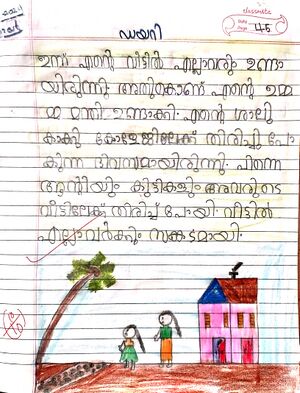 classmate
Date
Page 45
ഡയറി
ഇന്ന് എന്റെ വീട്ടിൽ എല്ലാവരും ഉണ്ടാ
യിരുന്നു. അതുകൊണ്ട് എന്റെ ഉമ്മ
മ്മ മന്തി ഉണ്ടാക്കി. എന്റെ ശാലു
കാക്കു കോളേജിലേക്ക് തിരിച്ചു പോ
കുന്ന ദിവസമായിരുന്നു. പിന്നെ
ആന്റിയും കുട്ടികളും അവരുടെ
വീട്ടിലേക്ക് തിരിച്ച് പോയി. വീട്ടിൽ
എല്ലാവർക്കും സങ്കടമായി.
10
10